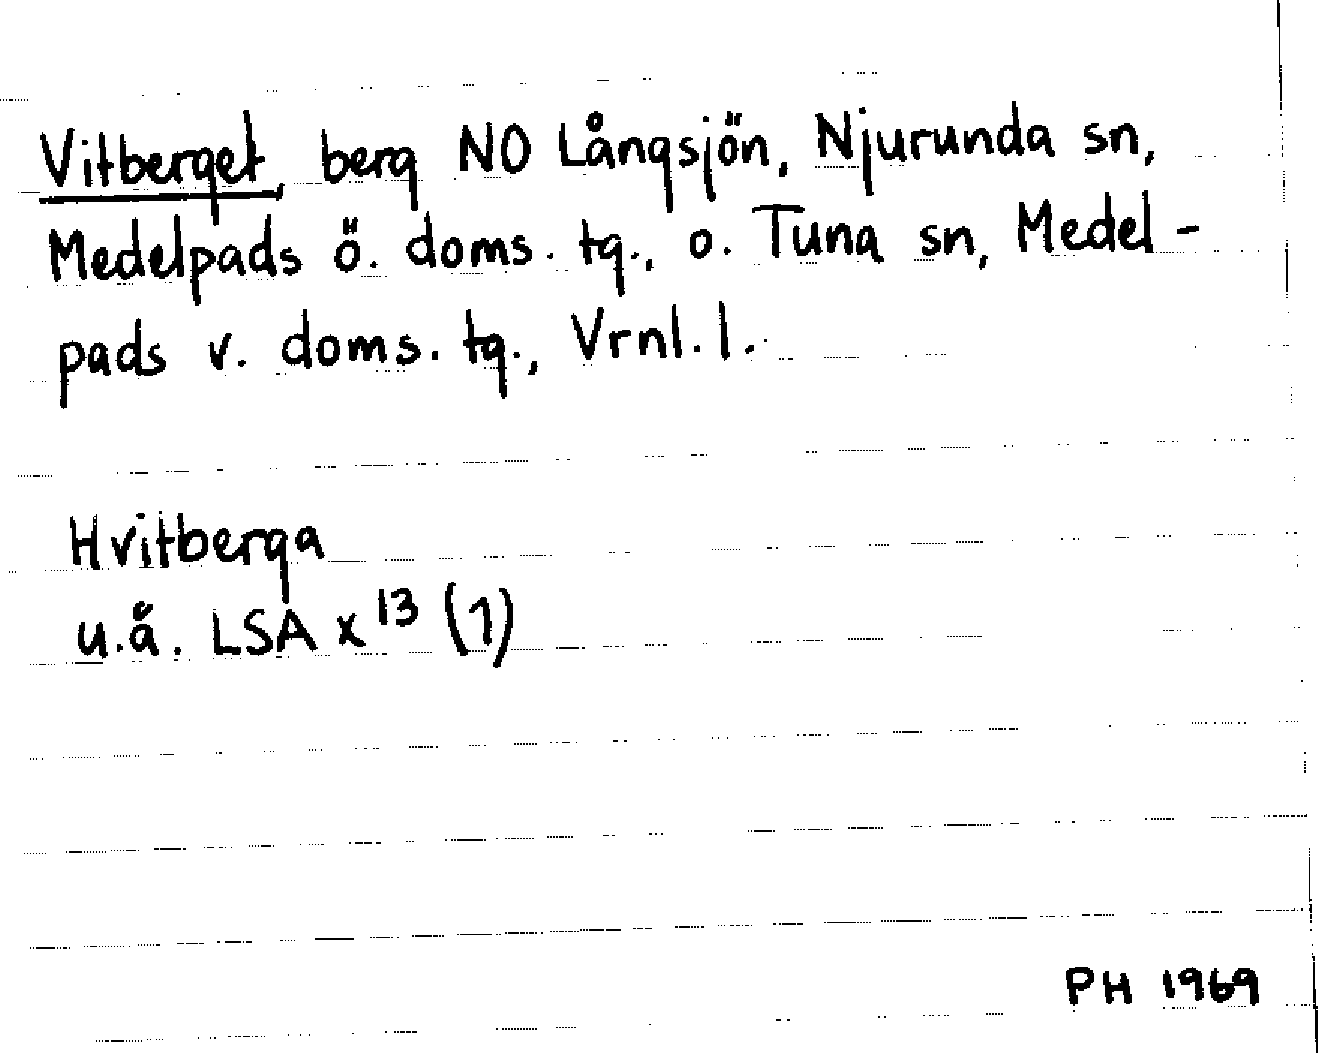 Vitberget, berg NO Långsjön, Njurunda sn,
Medelpads ö. doms. tg., o. Tuna sn, Medel-
pads v. doms. tg., Vrnl. l.
Hvitberga
u.å. LSA x 13 (1)
PH 1969